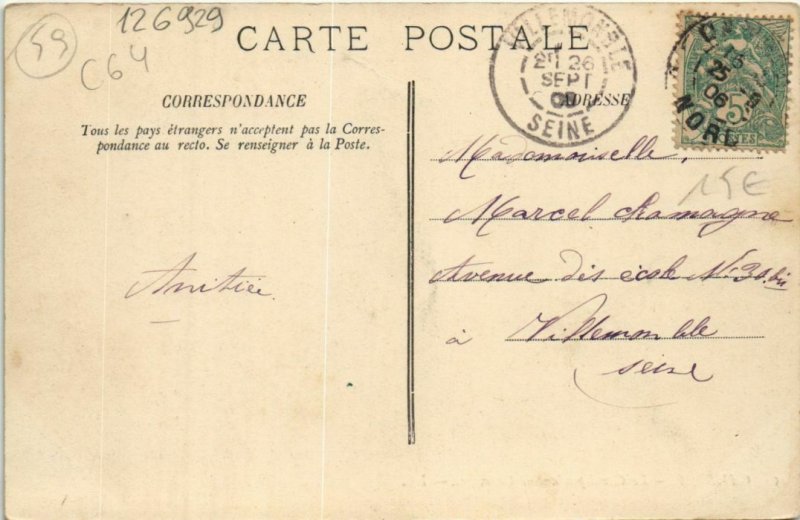 59
126929
C64
CARTE POSTALE
CORRESPONDANCE
Tous les pays étrangers n'acceptent pas la Corres-
pondance au recto. Se renseigner à la Poste.
Amitiée
VILLEMOMBLE
26
SEPT
SEINE
ADRESSE
25
06
NORD
5
15€
Mademoiselle,
Marcel Chamagne
Avenue dis école N° 30 bis
à Villemonble
seine